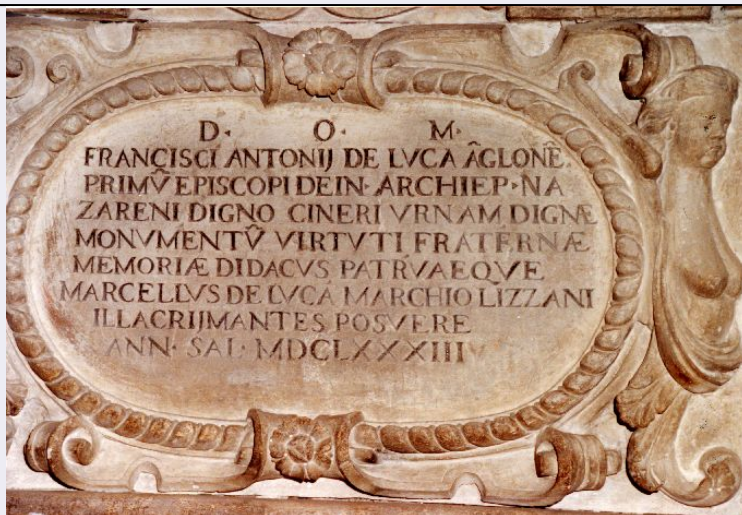 D· O· M·
FRANCISCI ANTONIJ DE LVCA ÂGLONẼ.
PRIMṼ EPISCOPI DEIN· ARCHIEP· NA
ZARENI DIGNO CINERI VRNAM DIGNÆ
MONVMENTṼ VIRTVTI FRATERNÆ
MEMORIÆ DIDACVS PATRVAEQVE
MARCELLVS DE LVCA MARCHIO LIZZANI
ILLACRIJMANTES POSVERE
ANN· SAL· MDCLXXXIIII